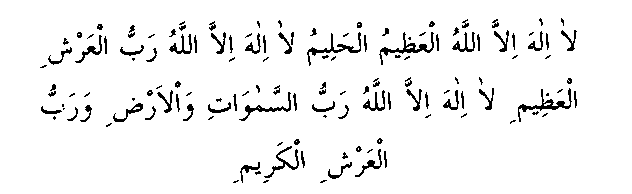 لاٰ اِلٰهَ اِلاَّ اللَّهُ الْعَظِيمُ الْحَلِيمُ لاٰ اِلٰهَ اِلاَّ اللَّهُ رَبُّ الْعَرْشِ
الْعَظِيمِ لاٰ اِلٰهَ اِلاَّ اللَّهُ رَبُّ السَّمٰوَاتِ وَاْلاَرْضِ وَرَبُّ
الْعَرْشِ الْكَرِيمِ